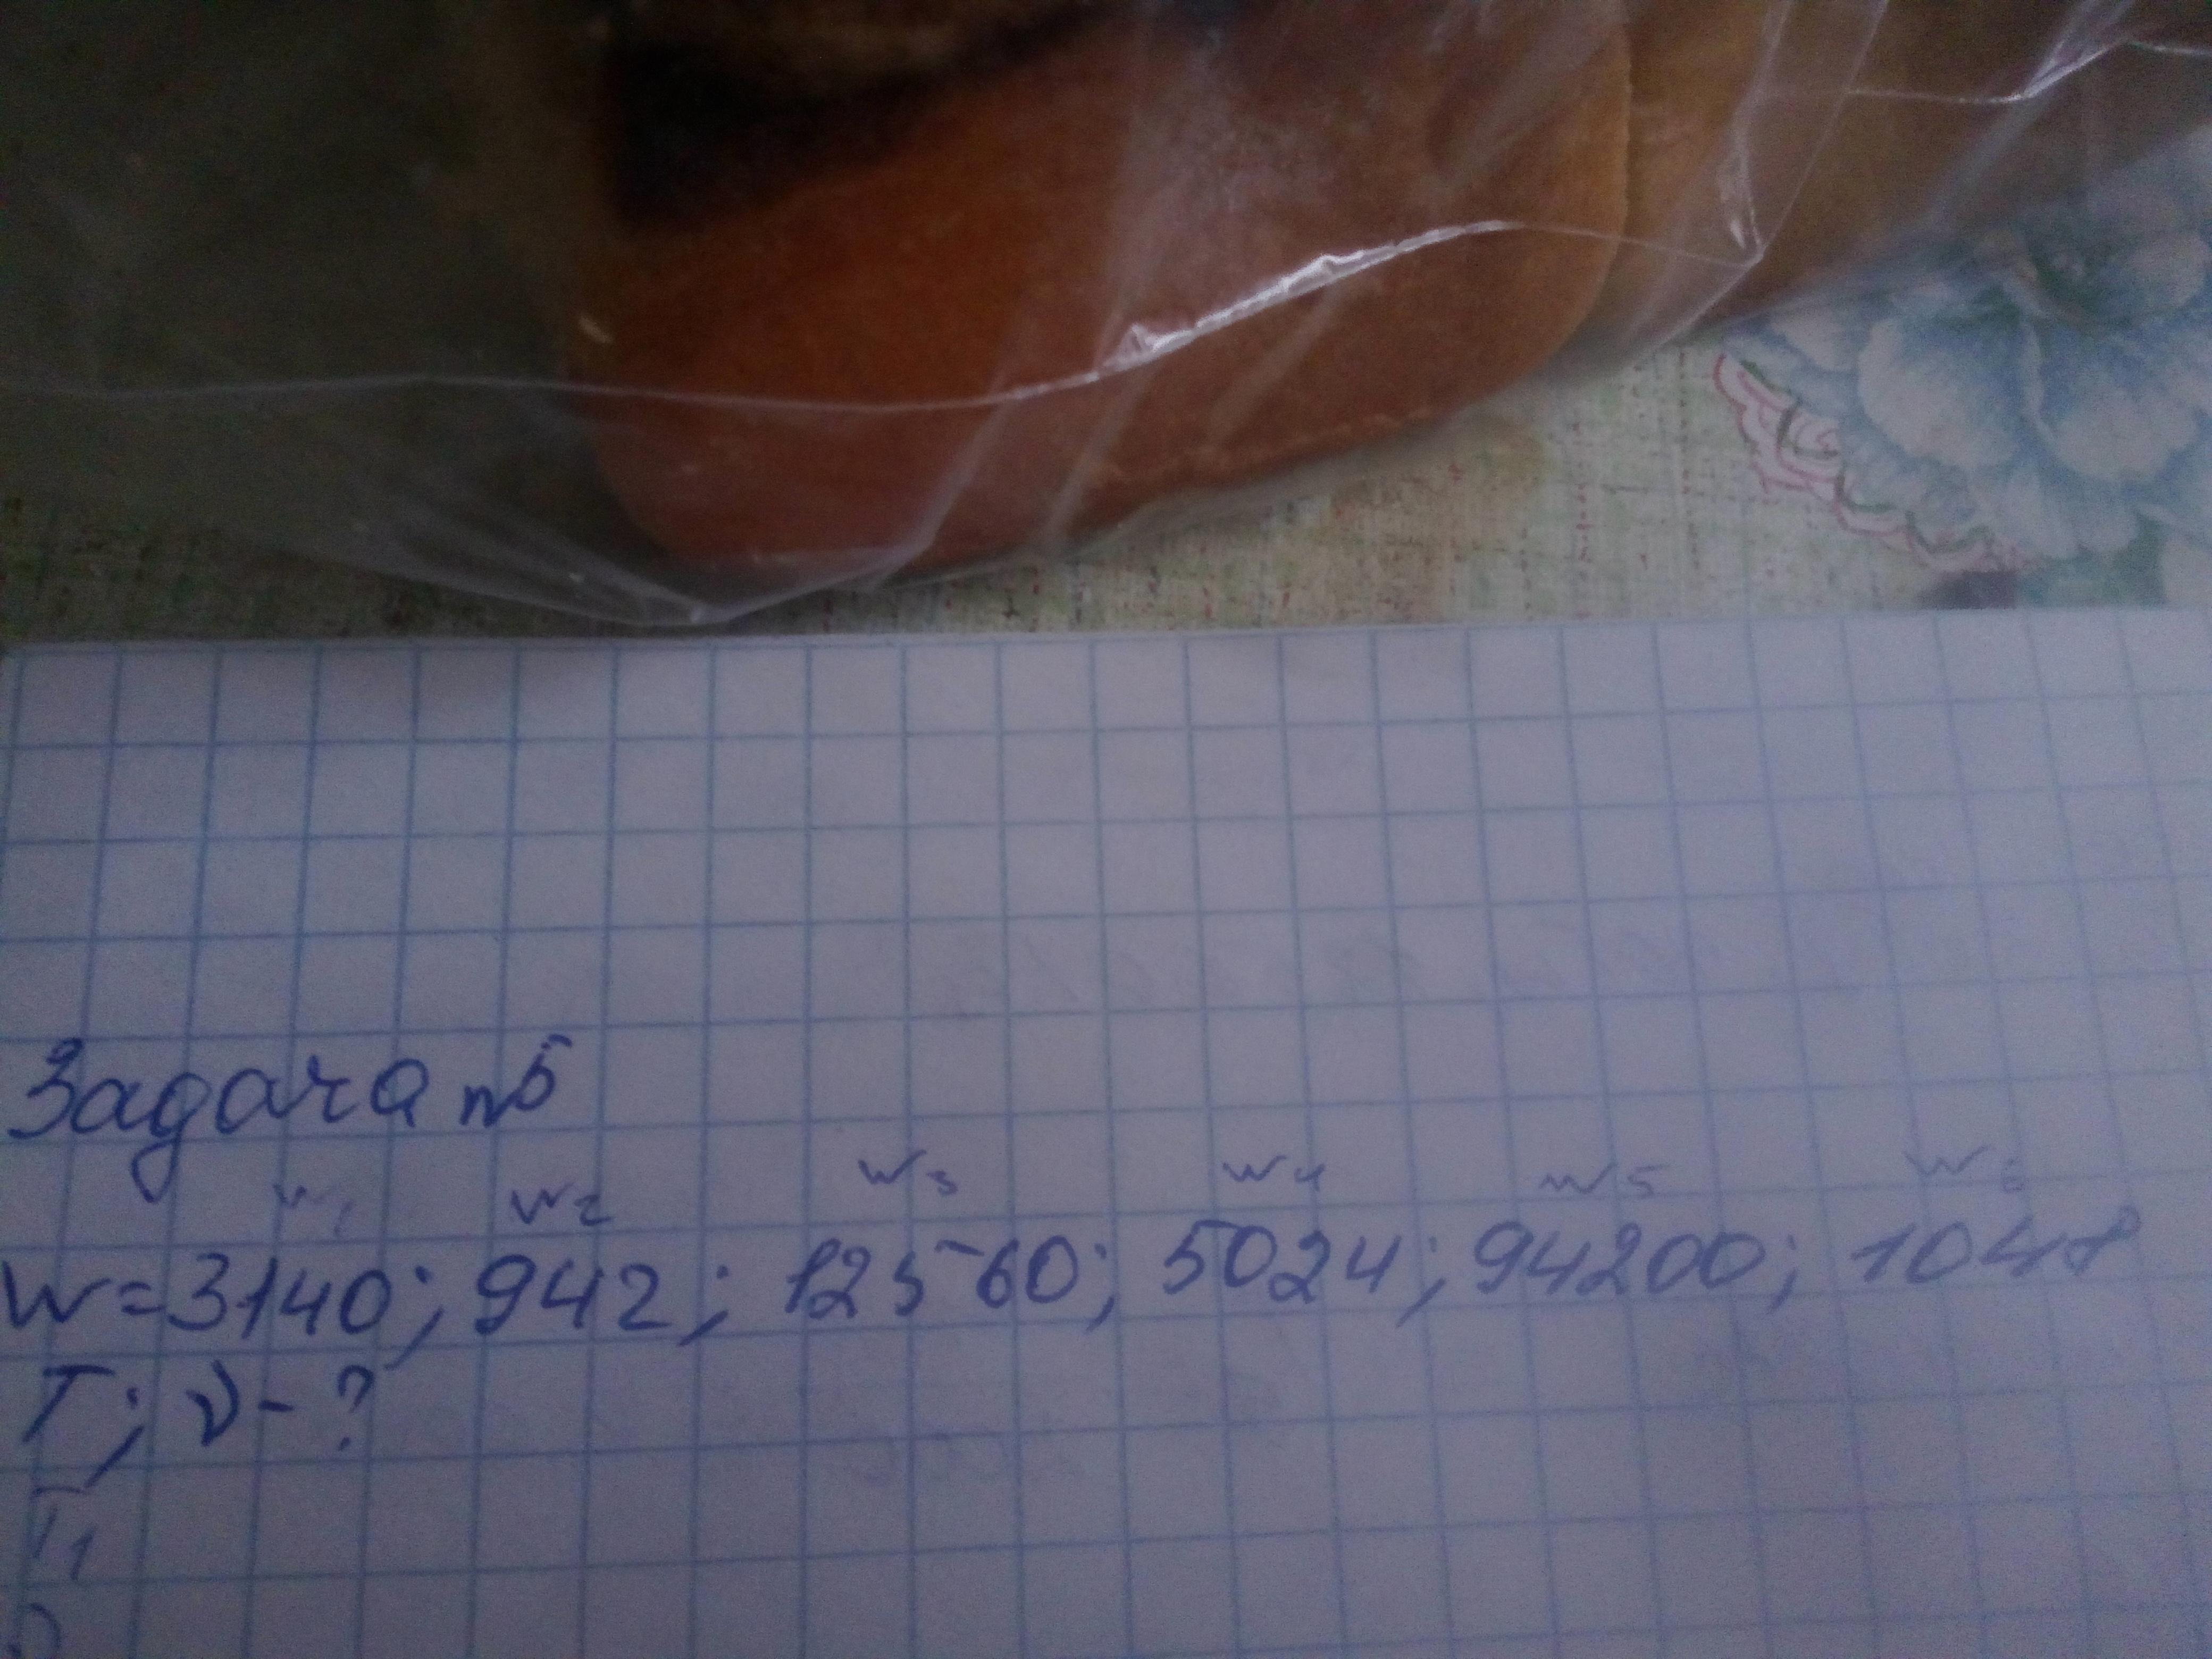 Задача №5
W1 W2 W3 W4 W5 W6
W=3140; 942; 12560; 5024; 94200; 1048
T; ν-?
T1